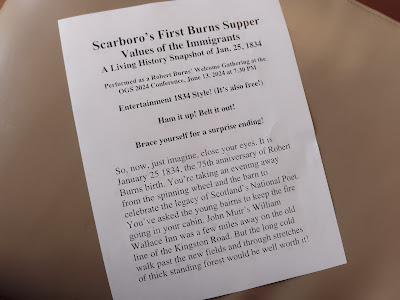 Scarboro's First Burns Supper
Values of the Immigrants
A Living History Snapshot of Jan. 25, 1834
Performed as a Robert Burns' Welcome Gathering at the
OGS 2024 Conference, June 13, 2024 at 7.30 PM
Entertainment 1834 Style! (It's also free!)
Ham it up! Belt it out!
Brace yourself for a surprise ending!
So, now, just imagine, close your eyes. It is
January 25 1834, the 75th anniversary of Robert
Burns birth. You're taking an evening away
from the spinning wheel and the barn to
celebrate the legacy of Scotland's National Poet.
You've asked the young bairns to keep the fire
going in your cabin. John Muir's William
Wallace Inn was a few miles away on the old
line of the Kingston Road. But the long cold
walk past the new fields and through stretches
of thick standing forest would be well worth it!